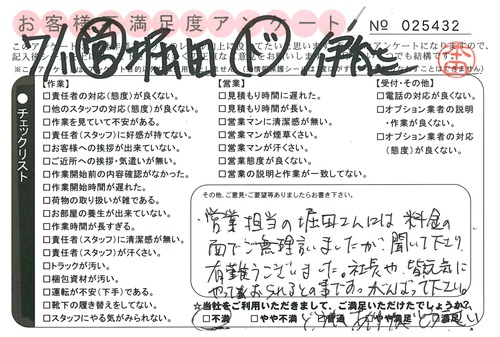 お客様不満足度アンケート
No 025432
7/1 営 堀田 ド 伊能
チェックリスト
【作業】
□責任者の対応(態度)が良くない。
□他のスタッフの対応(態度)が良くない。
□作業を見ていて不安がある。
□責任者(スタッフ)に好感が持てない。
□お客様への挨拶が出来ていない。
□ご近所への挨拶・気遣いが無い。
□作業開始前の内容確認がなかった。
□作業開始時間が遅れた。
□荷物の取り扱いが雑である。
□お部屋の養生が出来ていない。
□作業時間が長すぎる。
□責任者(スタッフ)に清潔感が無い。
□責任者(スタッフ)が汗くさい。
□トラックが汚い。
□梱包資材が汚い。
□運転が不安(下手)である。
□靴下の履き替えをしてない。
□スタッフにやる気がみられない。
【営業】
□見積もり時間に遅れた。
□見積もり時間が長い。
□営業マンに清潔感が無い。
□営業マンが煙草くさい。
□営業マンが汗くさい。
□営業態度が良くない。
□営業の説明と作業が一致してない。
【受付・その他】
□電話の対応が良くない。
□オプション業者の説明
・作業が良くない。
□オプション業者の対応
(態度)が良くない。
その他、ご意見・ご要望等ありましたらお書き下さい。
営業担当の堀田さんには料金の
面でご無理言いましたが、聞いて下さり
有難うございました。社長や、皆気気に
やっておられるとの事です。がんばって下さい。
☆当社をご利用いただきまして、ご満足いただけたでしょうか?
□不満 □やや不満 □普通